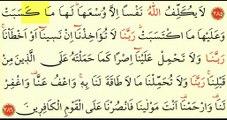 لَا يُكَلِّفُ اللَّهُ نَفْسًا إِلَّا وُسْعَهَا لَهَا مَا كَسَبَتْ
وَعَلَيْهَا مَا اكْتَسَبَتْ رَبَّنَا لَا تُؤَاخِذْنَا إِنْ نَسِينَا أَوْ أَخْطَأْنَا
رَبَّنَا وَلَا تَحْمِلْ عَلَيْنَا إِصْرًا كَمَا حَمَلْتَهُ عَلَى الَّذِينَ مِنْ
قَبْلِنَا رَبَّنَا وَلَا تُحَمِّلْنَا مَا لَا طَاقَةَ لَنَا بِهِ وَاعْفُ عَنَّا وَاغْفِرْ
لَنَا وَارْحَمْنَا أَنْتَ مَوْلَينَا فَانْصُرْنَا عَلَى الْقَوْمِ الْكَافِرِينَ